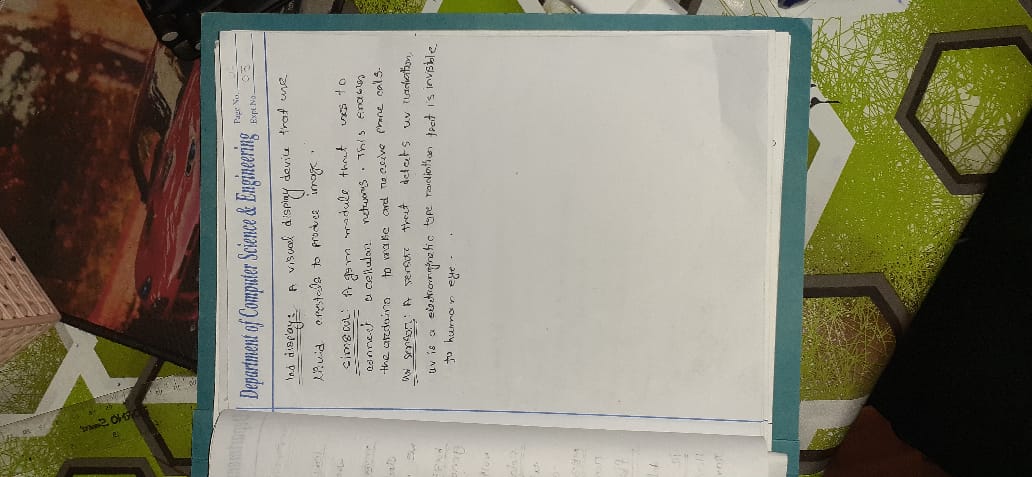 Department of Computer Science & Engineering
Page No.
Expt. No. 03
lcd display: A visual display device that use
liquid crystals to produce image.
sim900: A gsm module that uses to
connect a cellular networks. This enables
the arduino to make and receive phone calls.
uv sensor: A sensor that detects uv radiation.
uv is a electromagnetic type radiation that is invisible
to human eye.